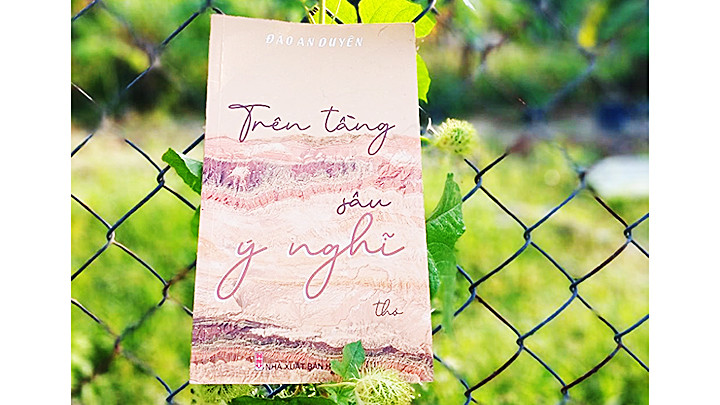 ĐÀO AN DUYÊN
Trên tầng
sâu
ý nghĩ
thơ
NHÀ XUẤT BẢN